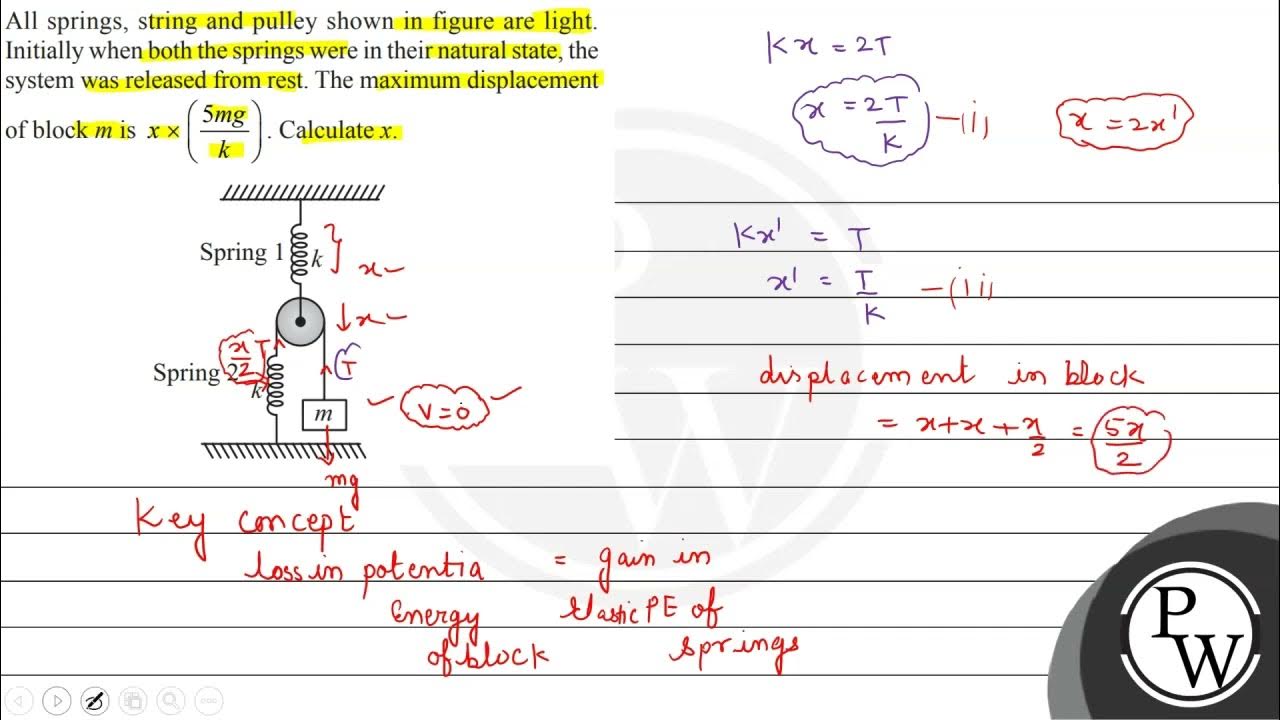 All springs, string and pulley shown in figure are light.
Initially when both the springs were in their natural state, the
system was released from rest. The maximum displacement
of block m is x × (5mg/k). Calculate x.
Spring 1
k
x
x
x/2
T
T
Spring 2
k
m
V=0
mg
Kx = 2T
x = 2T/K -(i)
x = 2x'
Kx' = T
x' = T/K -(ii)
displacement in block
= x+x+x/2 = 5x/2
Key concept
loss in potentia = gain in
Energy Elastic PE of
of block springs
P
W